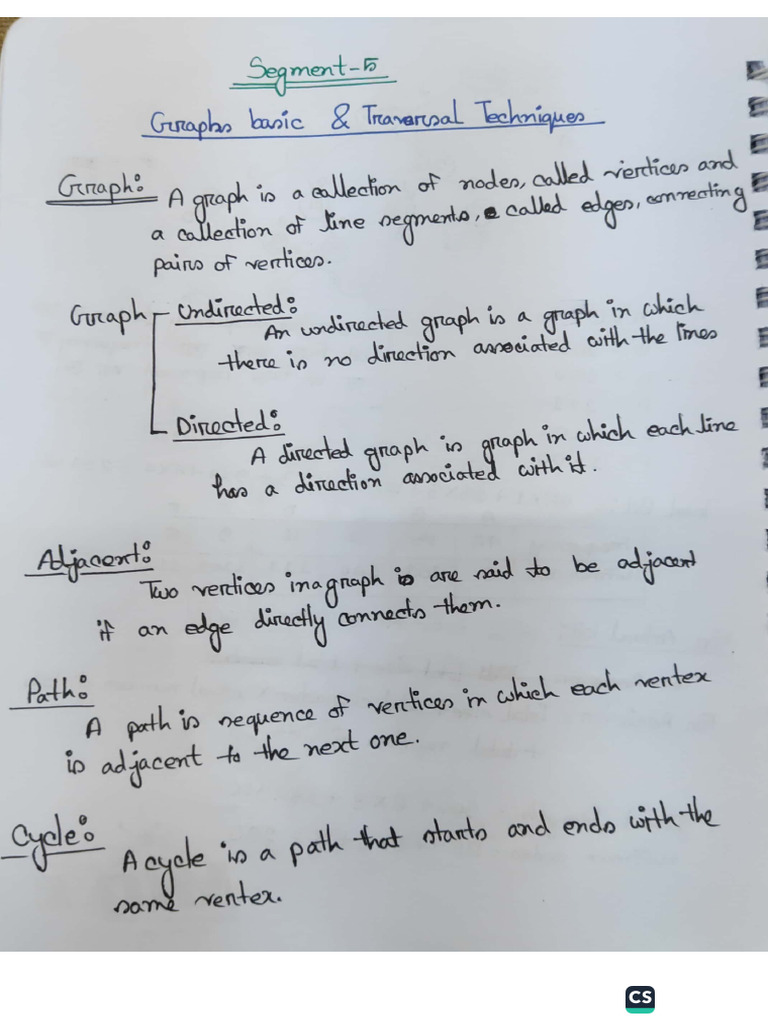 Segment-5
Graphs basic & Traversal Techniques
Graph: A graph is a collection of nodes, called vertices and
a collection of line segments, called edges, connecting
pairs of vertices.
Graph Undirected:
An undirected graph is a graph in which
there is no direction associated with the lines
Directed:
A directed graph is graph in which each line
has a direction associated with it.
Adjacent:
Two vertices in a graph is are said to be adjacent
if an edge directly connects them.
Path:
A path is sequence of vertices in which each vertex
is adjacent to the next one.
Cycle:
A cycle is a path that starts and ends with the
same vertex.
CS